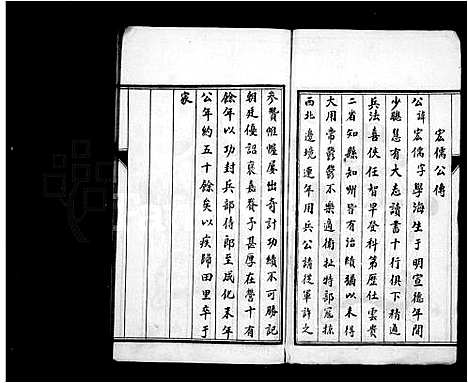 宏儒公傳
公諱宏儒字學海生于明宣德年間
少聰慧有大志讀書十行俱下精通
兵法喜俠任智早登科第歷仕雲貴
二省知縣知州皆有治績猶以未得
大用常鬱鬱不樂適俺扯特部寇掠
西北邊境連年用兵公請從軍許之
參贊帷幄屢出奇計功績不可勝記
朝廷優詔褒嘉眷予甚厚在營十有
餘年以功封兵部侍郎至成化末年
公年約五十餘矣以疾歸田里卒于
家